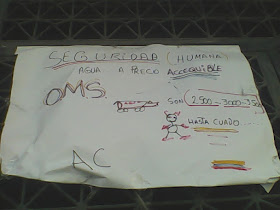 SEGURIDAD (HUMANA)
AGUA A PRECIO ACCEQUIBLE
OMS
SON (2500-3000-350
HASTA CUADO
AC